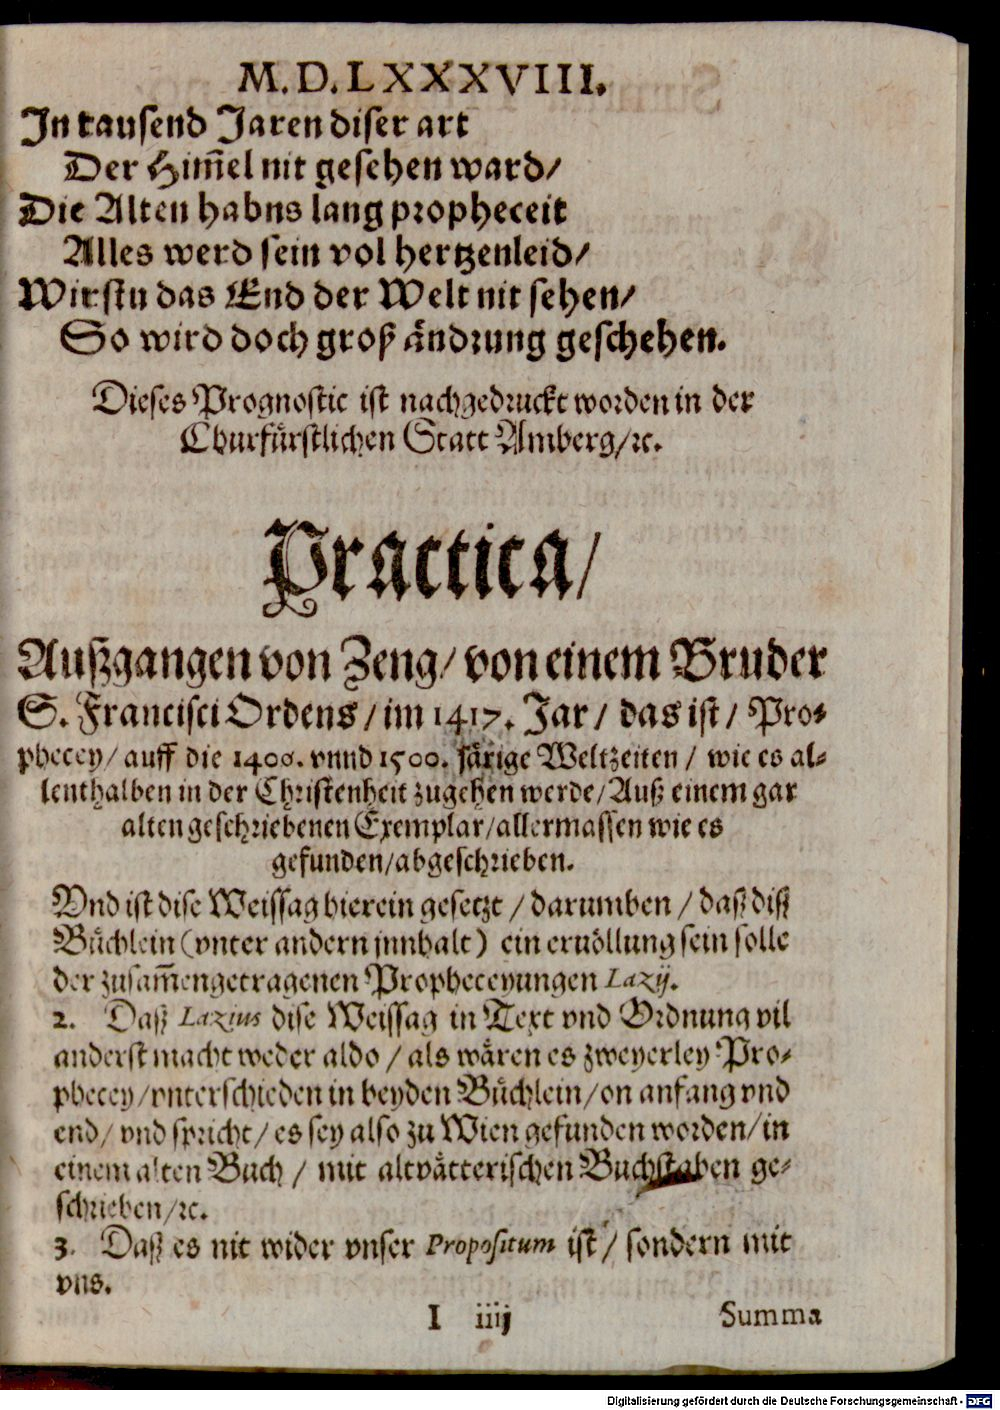 M.D.LXXXVIII.
In tausend Jaren diser art
Der Him̃el nit gesehen ward/
Die Alten habns lang propheceit
Alles werd sein vol hertzenleid/
Wirstu das End der Welt nit sehen/
So wird doch groß ändrung geschehen.
Dieses Prognostic ist nachgedruckt worden in der
Churfürstlichen Statt Amberg/ꝛc.
Practica/
Außgangen von Zeng/ von einem Bruder
S. Francisci Ordens/im 1417. Jar/ das ist/ Pro-
phecey/ auff die 1400. vnnd 1500. järige Weltzeiten/ wie es al-
lenthalben in der Christenheit zugehen werde/Auß einem gar
alten geschriebenen Exemplar/allermassen wie es
gefunden/abgeschrieben.
Vnd ist dise Weissag hierein gesetzt/darumben/daß diß
Büchlein (vnter andern jnnhalt) ein eruöllung sein solle
der zusam̃engetragenen Propheceyungen Lazij.
2. Daß Lazius dise Weissag in Text vnd Ordnung vil
anderst macht weder aldo/als wären es zweyerley Pro-
phecey/vnterschieden in beyden Büchlein/on anfang vnd
end/vnd spricht/es sey also zu Wien gefunden worden/in
einem alten Buch/ mit altvätterischen Buchstaben ge-
schrieben/ꝛc.
3. Daß es nit wider vnser Propositum ist/ sondern mit
vns.
I iiij Summa
Digitalisierung gefördert durch die Deutsche Forschungsgemeinschaft - DFG